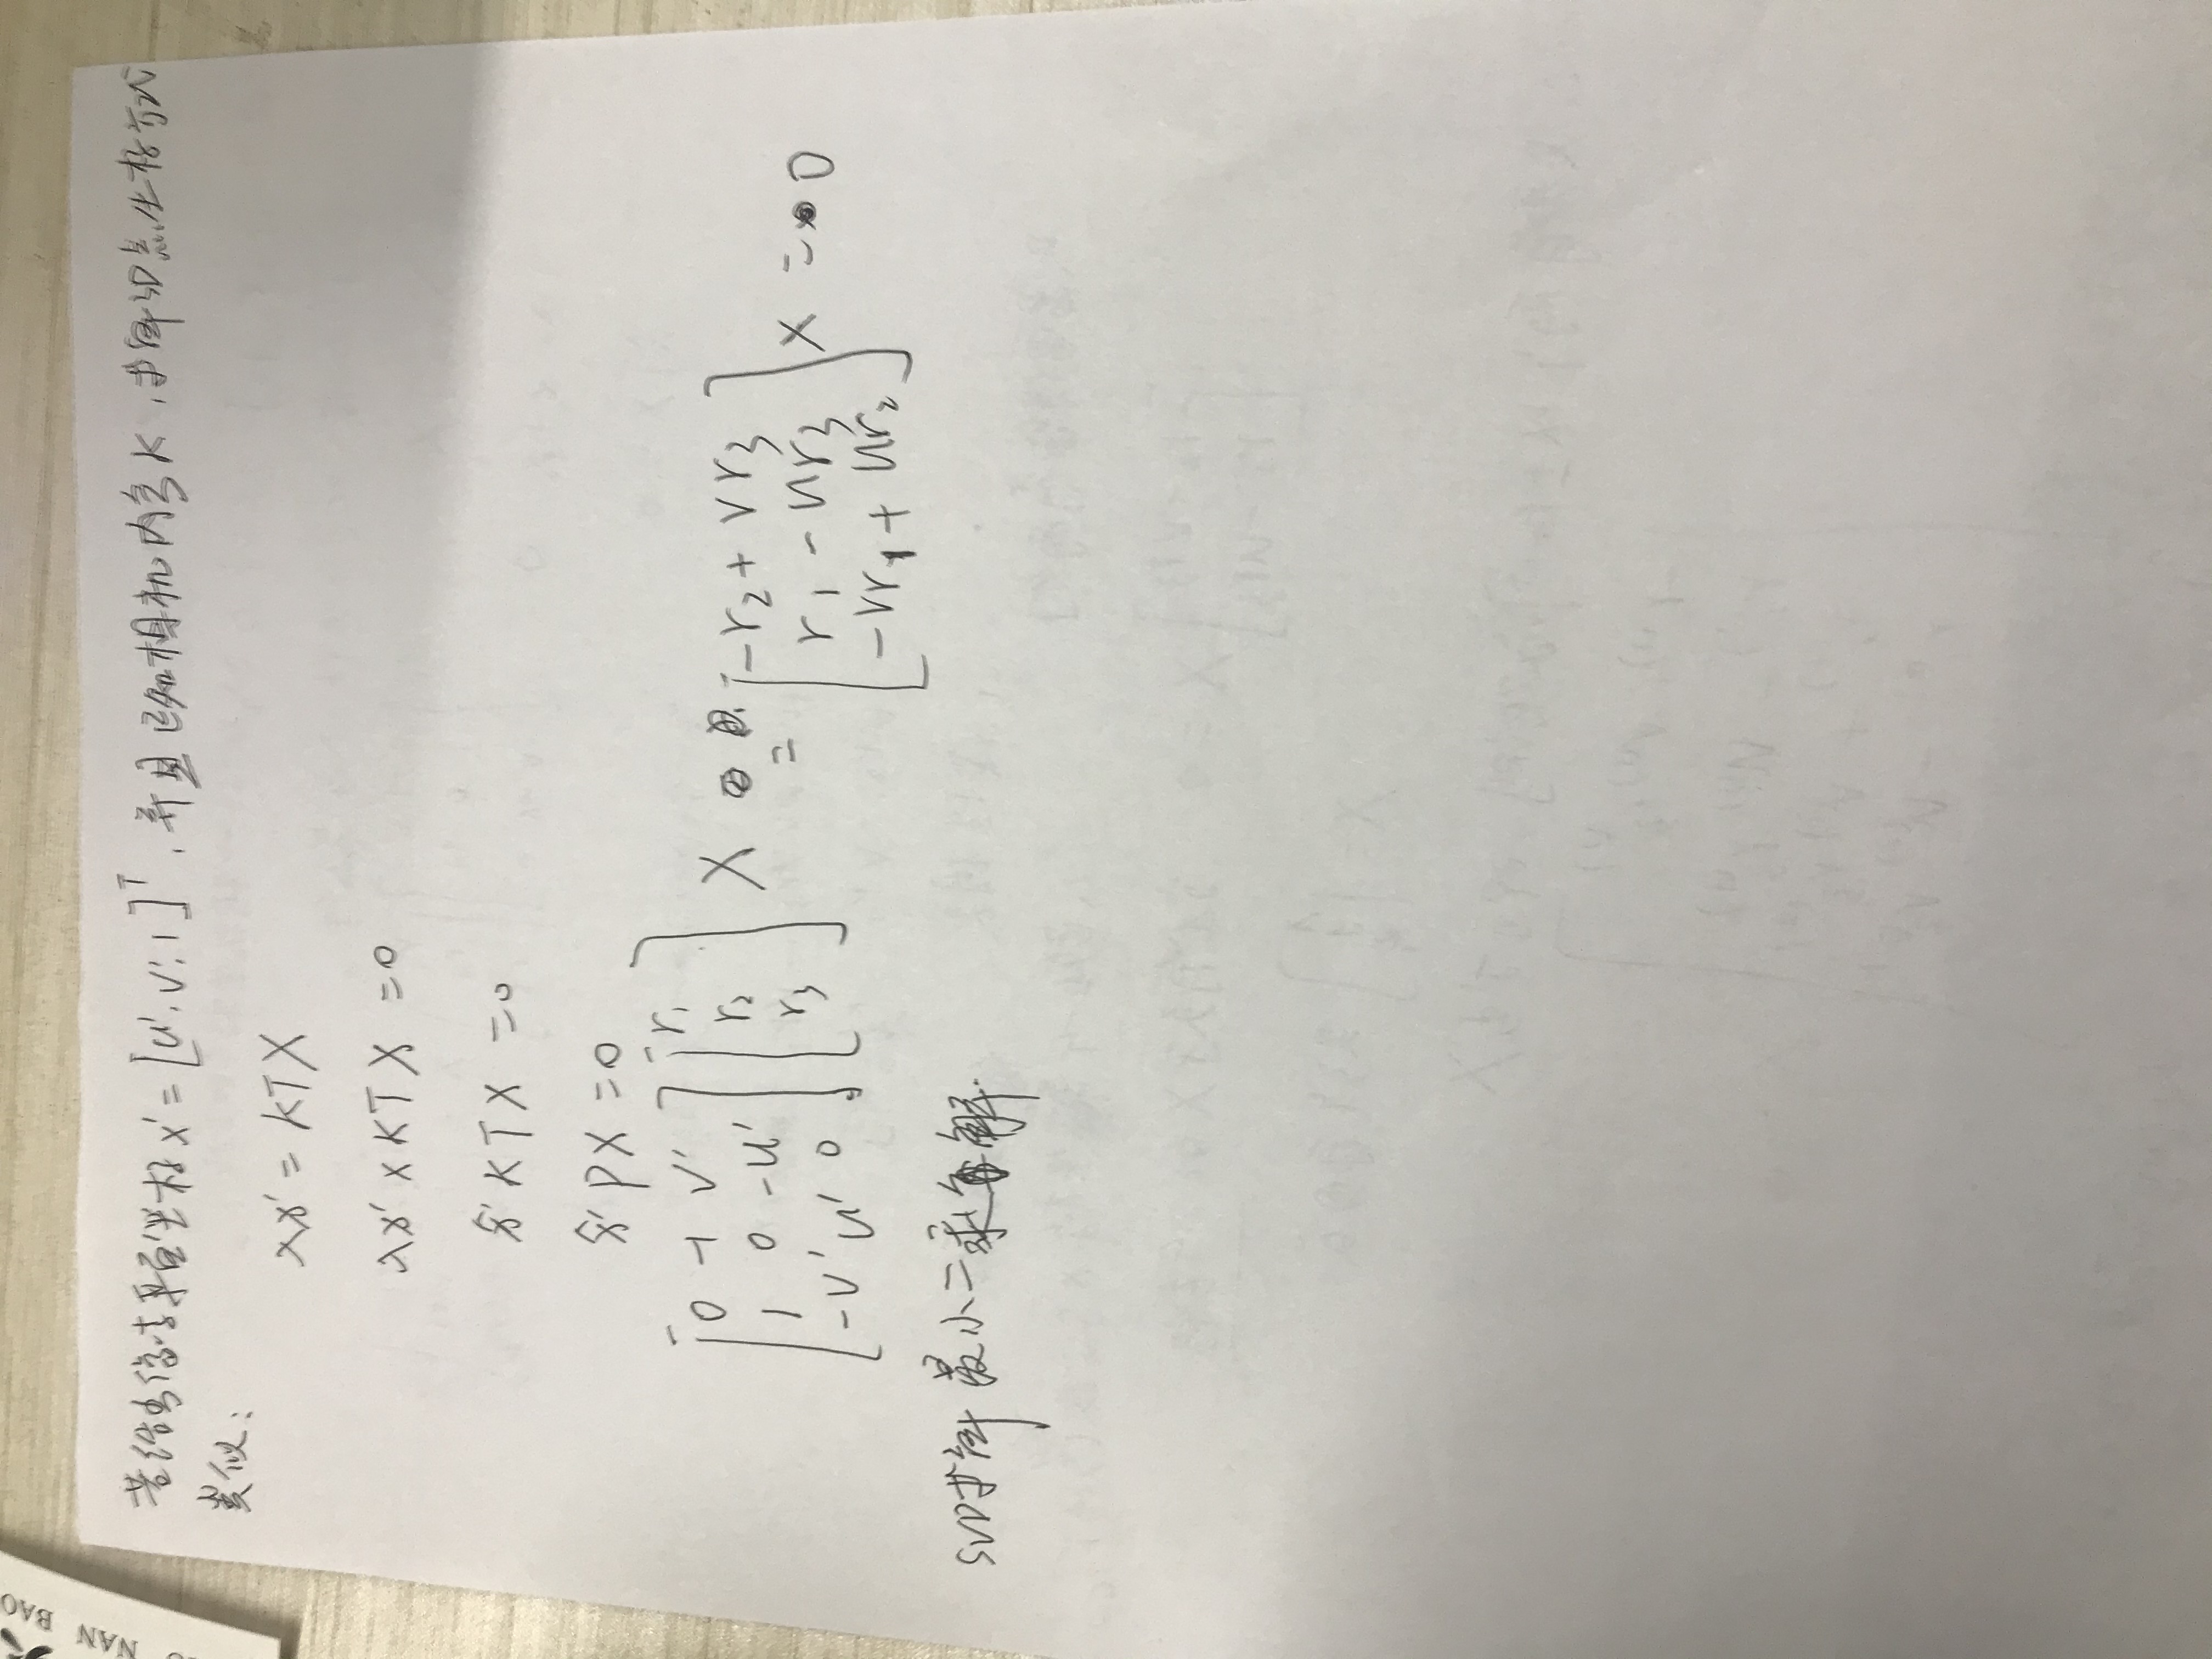 NAN BAO
若给出像素平面坐标 x' = [u', v', 1]^T, 并且已知相机内参 K, 求解3D点坐标方式
类似:
λx' = KTX
λx' × KTX = 0
x̂' KTX = 0
x̂' PX = 0
[0 -1 v'; 1 0 -u'; -v' u' 0] [r₁; r₂; r₃] X = [-r₂ + vr₃; r₁ - ur₃; -vr₁ + ur₂] X = 0
SVD求解 最小二乘解.